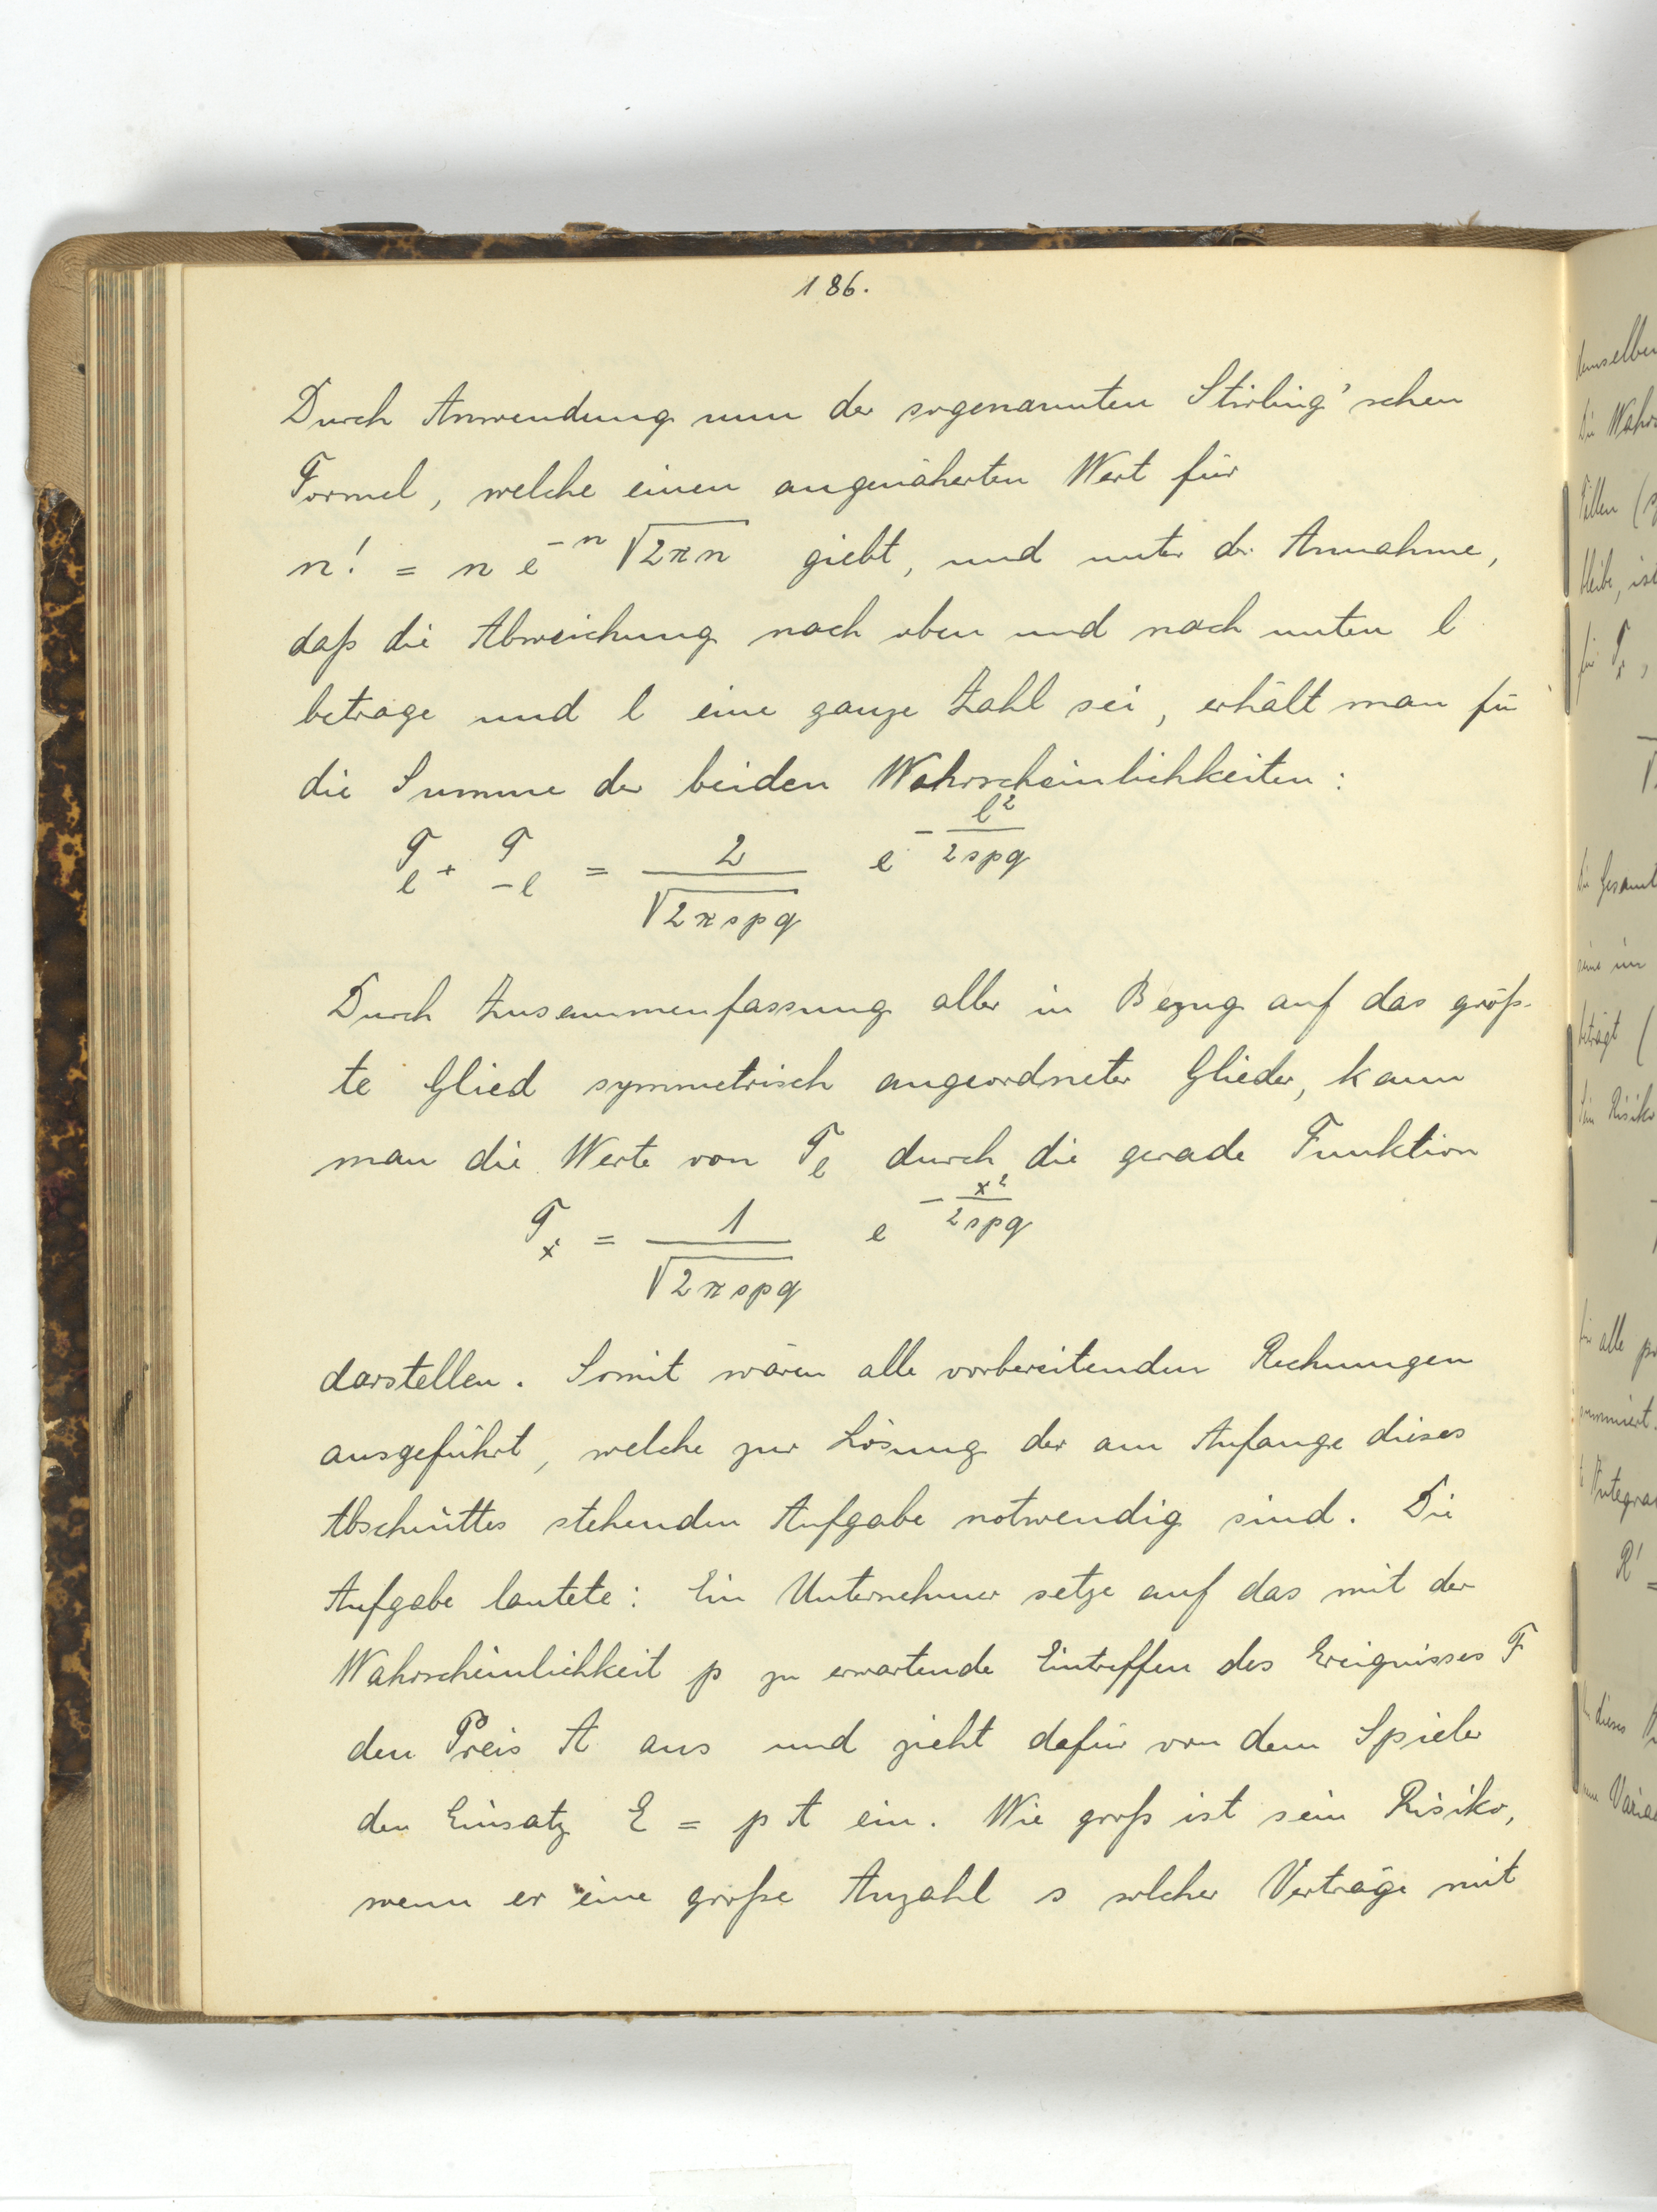 186.
Durch Anwendung nun der sogenannten Stirling'schen
Formel, welche einen angenäherten Wert für
n! = n e^{-n} √(2πn) giebt, und unter der Annahme,
daß die Abweichung nach oben und nach unten l
betrage und l eine ganze Zahl sei, erhält man für
die Summe der beiden Wahrscheinlichkeiten:
P_l + P_{-l} = 2/√(2πspq) e^{-l²/(2spq)}
Durch Zusammenfassung aller in Bezug auf das größ-
te Glied symmetrisch angeordneter Glieder, kann
man die Werte von P_l durch die gerade Funktion
P_x = 1/√(2πspq) e^{-x²/(2spq)}
darstellen. Somit wären alle vorbereitenden Rechnungen
ausgeführt, welche zur Lösung der am Anfange dieses
Abschnittes stehenden Aufgabe notwendig sind. Die
Aufgabe lautete: Ein Unternehmer setze auf das mit der
Wahrscheinlichkeit p zu erwartende Eintreffen des Ereignisses F
den Preis A aus und zieht dafür von dem Spieler
den Einsatz E = p A ein. Wie groß ist sein Risiko,
wenn er eine große Anzahl s solcher Verträge mit
demselben
Die
Fällen
für P_x,
Die
beträgt (
Sein Risiko
für alle
summiert.
R' =
dieses